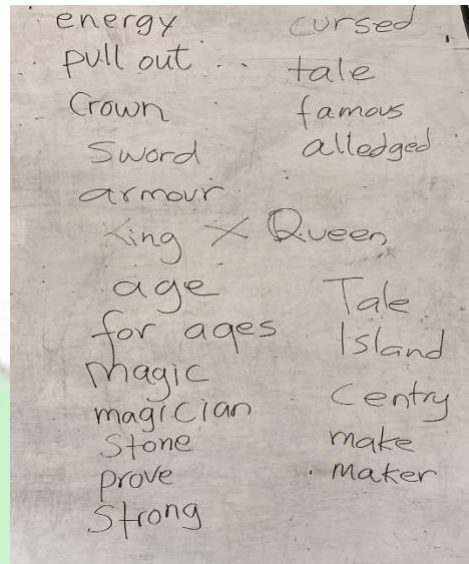 energy
pull out
Crown
Sword
armour
King X Queen
age
for ages
magic
magician
Stone
prove
Strong
cursed
tale
famous
alledged
Tale
Island
Centry
make
maker